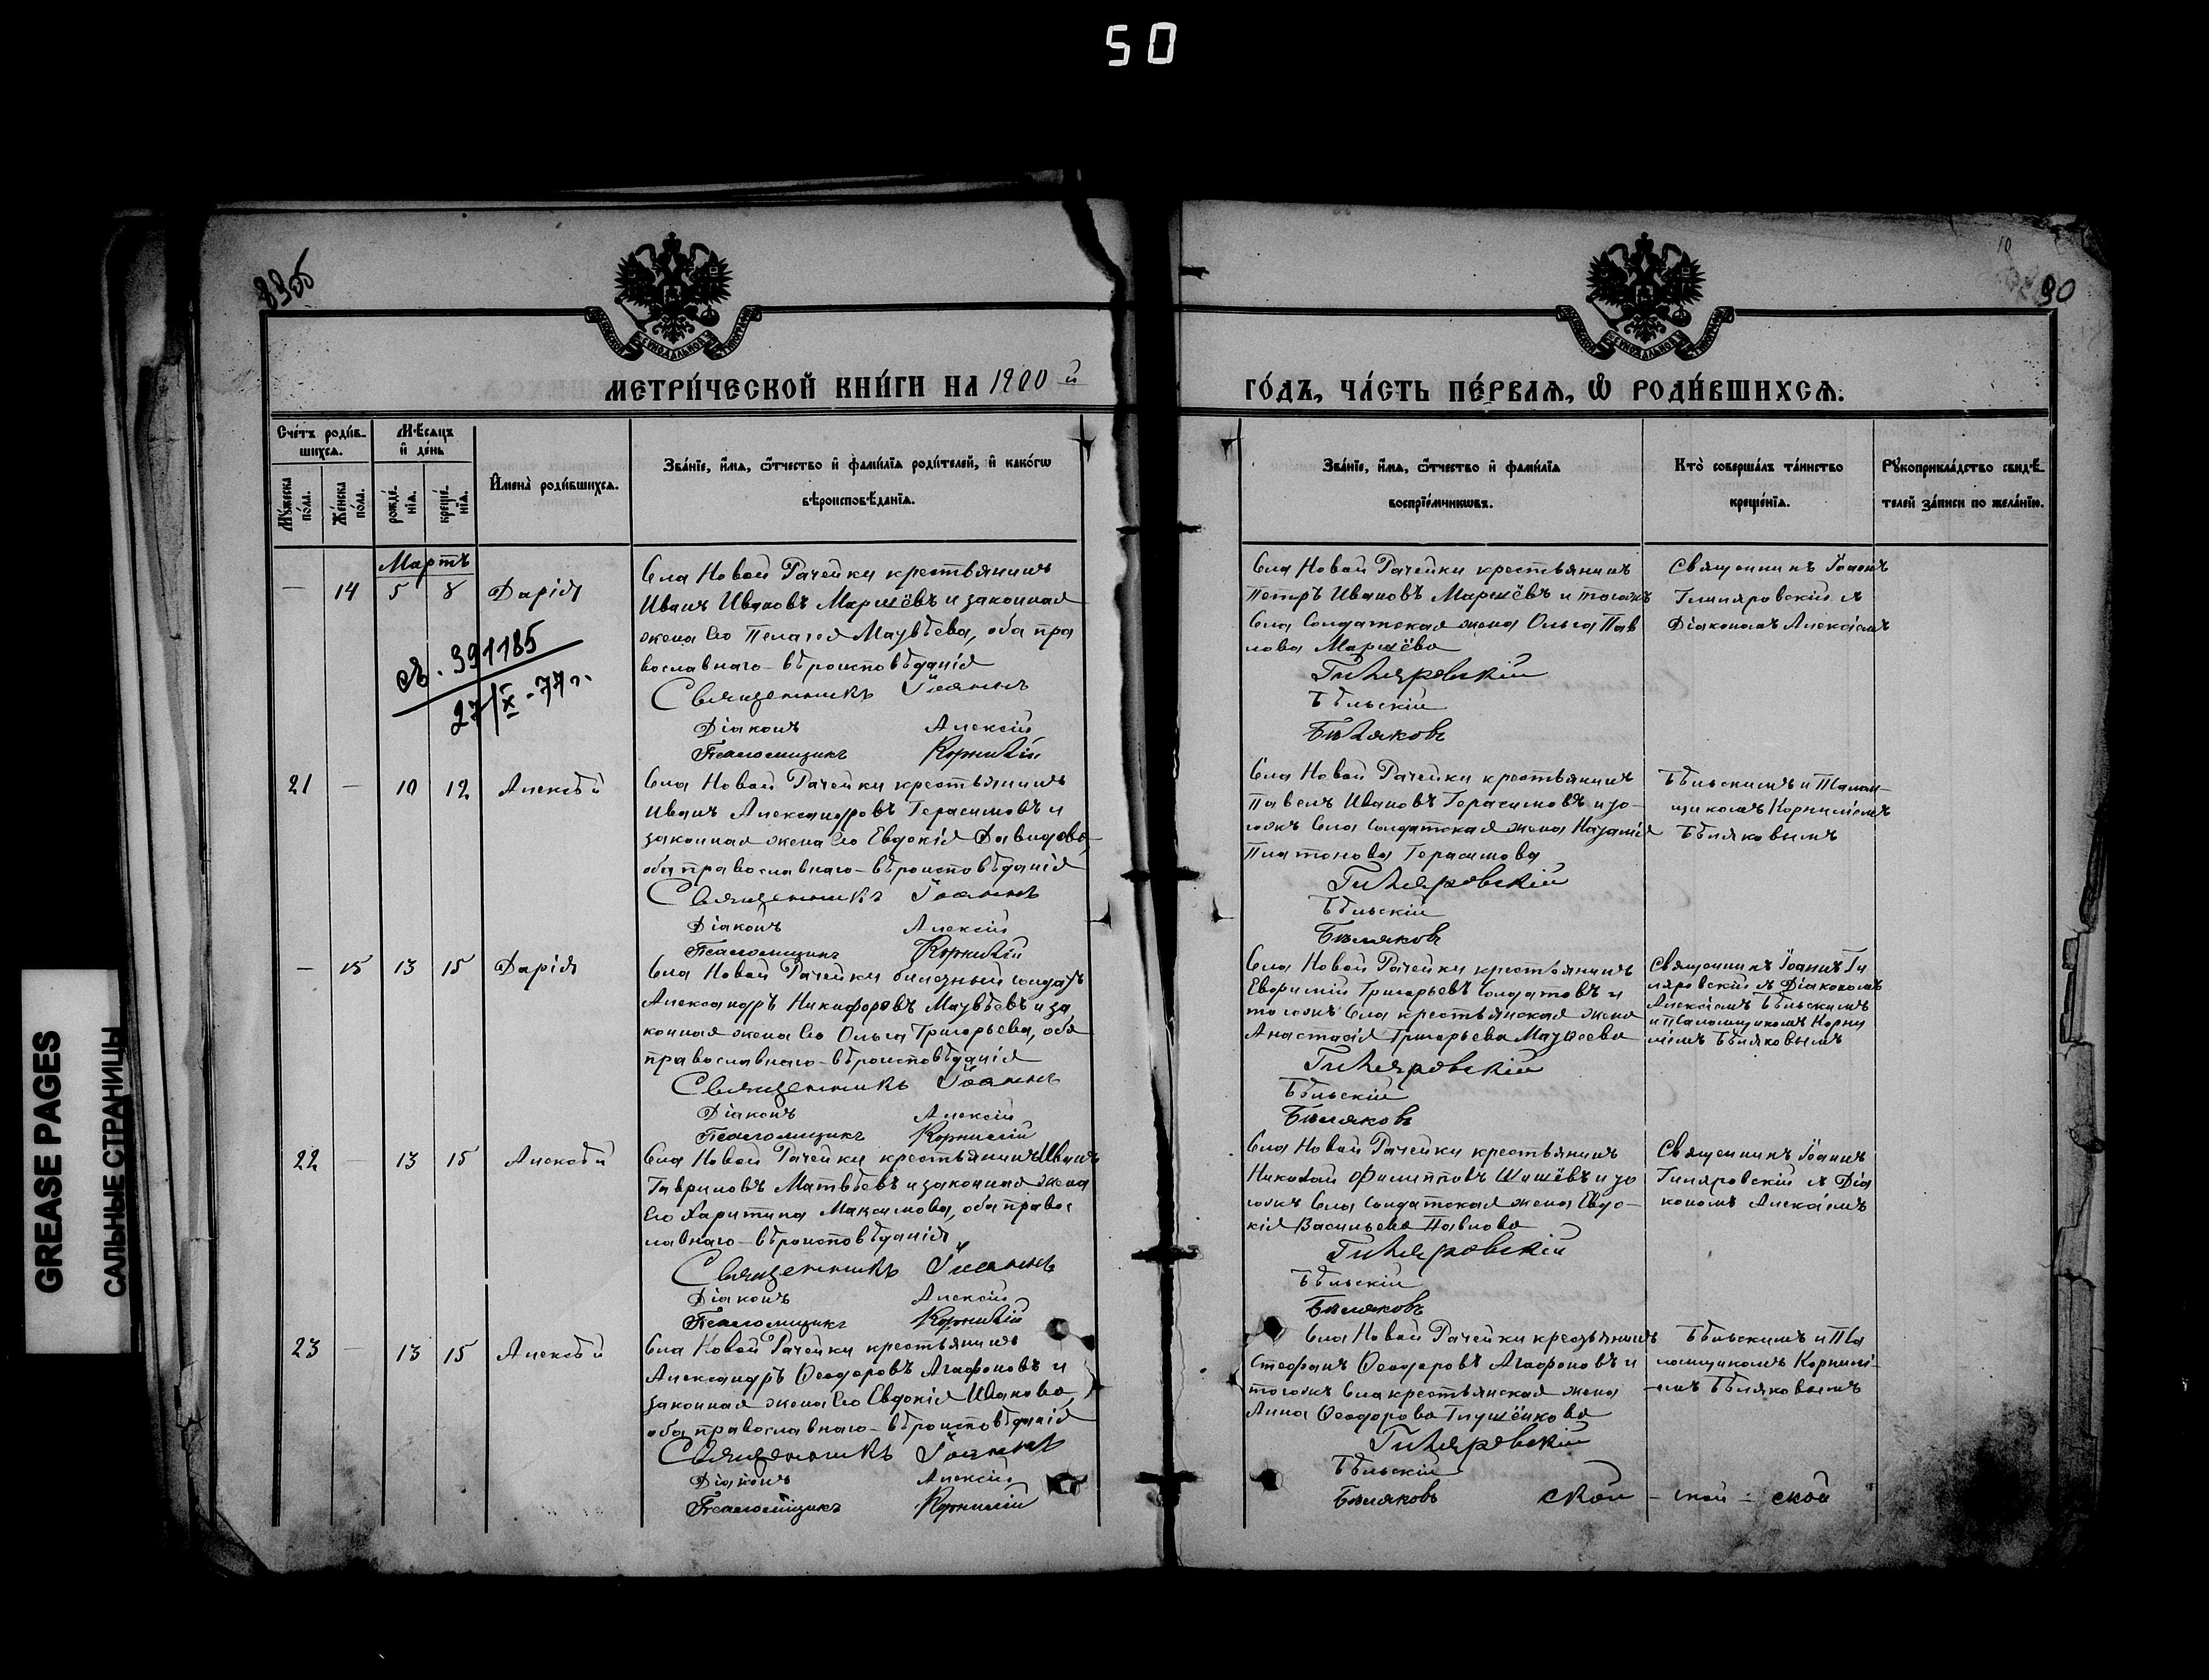 50
8906
10
90
МЕТРИ́ЧЕСКОЙ КНИ́ГИ НА 1900 й
ГО́ДЪ, ЧА́СТЬ ПЕ́РВАѦ, Ѡ҆ РОДИ́ВШИХСѦ.
Сче́тъ роди́в-
шихсѧ.
Мꙋ́жеска по́ла.
Же́нска по́ла.
Мѣ́сѧцъ
и҆ де́нь
рожде́-
нїѧ.
креще́-
нїѧ.
И҆мена̀ роди́вшихсѧ.
Зва́нїе, и҆́мѧ, ѻ҆́тчество и҆ фами́лїѧ роди́телей, и҆ како́гѡ
вѣроисповѣ́данїѧ.
Зва́нїе, и҆́мѧ, ѻ҆́тчество и҆ фами́лїѧ
воспрїе́мникѡвъ.
Кто̀ соверша́лъ та́инство
креще́нїѧ.
Рꙋкоприкла́дство свидѣ́-
телей за́писи по жела́нїю.
Мартъ
— 14 5 8 Дарія
Села Новой Рачейки крестьянинъ
Иванъ Ивановъ Маршёвъ и законная
жена его Пелагея Матвѣева, оба пра
вославнаго вѣроисповѣданія
Священникъ Іоаннъ
Діаконъ Алексій
Псаломщикъ Корнилій
391185
27/X-77 г.
Села Новой Рачейки крестьянинъ
Петръ Ивановъ Маршёвъ и тогожъ
села солдатская жена Ольга Пав
лова Маршёва
Гиляровскій
Бѣльскій
Бѣляковъ
Священникъ Іоаннъ
Гиляровскій съ
Діакономъ Алексіемъ
21 — 10 12 Алексѣй
Села Новой Рачейки крестьянинъ
Иванъ Александровъ Герасимовъ и
законная жена его Евдокія Давидова,
оба православнаго вѣроисповѣданія
Священникъ Іоаннъ
Діаконъ Алексій
Псаломщикъ Корнилій
Села Новой Рачейки крестьянинъ
Павелъ Ивановъ Герасимовъ и то-
гожъ села солдатская жена Наталія
Платонова Герасимова
Гиляровскій
Бѣльскій
Бѣляковъ
Бѣльскимъ и Псалом-
щикомъ Корниліемъ
Бѣляковымъ
— 15 13 15 Дарія
Села Новой Рачейки билетный солдатъ
Александръ Никифоровъ Матвѣевъ и за
конная жена его Ольга Григорьева, оба
православнаго вѣроисповѣданія
Священникъ Іоаннъ
Діаконъ Алексій
Псаломщикъ Корнилій
Села Новой Рачейки крестьянинъ
Евфимій Григорьевъ Солдатовъ и
тогожъ села крестьянская жена
Анастасія Григорьева Матвеева
Гиляровскій
Бѣльскій
Бѣляковъ
Священникъ Іоаннъ Ги
ляровскій съ Діакономъ
Алексіемъ Бѣльскимъ
и Псаломщикомъ Корни
ліемъ Бѣляковымъ
22 — 13 15 Алексѣй
Села Новой Рачейки крестьянинъ Иванъ
Гавриловъ Матвѣевъ и законная жена
его Харитина Максимова, оба правос
лавнаго вѣроисповѣданія
Священникъ Іоаннъ
Діаконъ Алексій
Псаломщикъ Корнилій
Села Новой Рачейки крестьянинъ
Николай Филипповъ Шишёвъ и то
гожъ села солдатская жена Евдо-
кія Васильева Павлова
Гиляровскій
Бѣльскій
Бѣляковъ
Священникъ Іоаннъ
Гиляровскій съ Діа
кономъ Алексіемъ
23 — 13 15 Алексѣй
Села Новой Рачейки крестьянинъ
Александръ Ѳеодоровъ Агафоновъ и
законная жена его Евдокія Иванова,
оба православнаго вѣроисповѣданія
Священникъ Іоаннъ
Діаконъ Алексій
Псаломщикъ Корнилій
Села Новой Рачейки крестьянинъ
Стефанъ Ѳеодоровъ Агафоновъ и
тогожъ села крестьянская жена
Анна Ѳеодорова Глушёнкова
Гиляровскій
Бѣльскій
Бѣляковъ
Бѣльскимъ и Пса
ломщикомъ Корнилі-
емъ Бѣляковымъ
ской - ской - ской
GREASE PAGES
САЛЬНЫЕ СТРАНИЦЫ